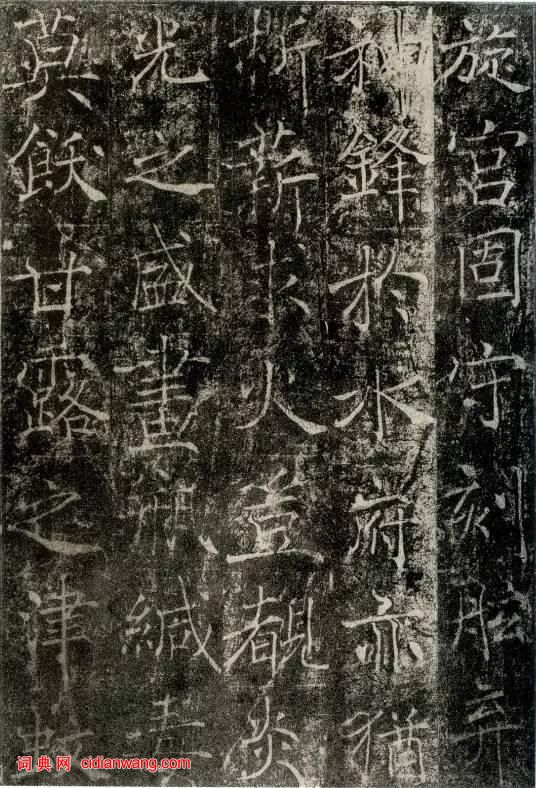 旋宮固守刻舩弃
神鋒於水府亦猶
析薪求火豈覩炎
光之盛畫瓶緘毒
莫飫甘露之津
词典网 cidianwang.com